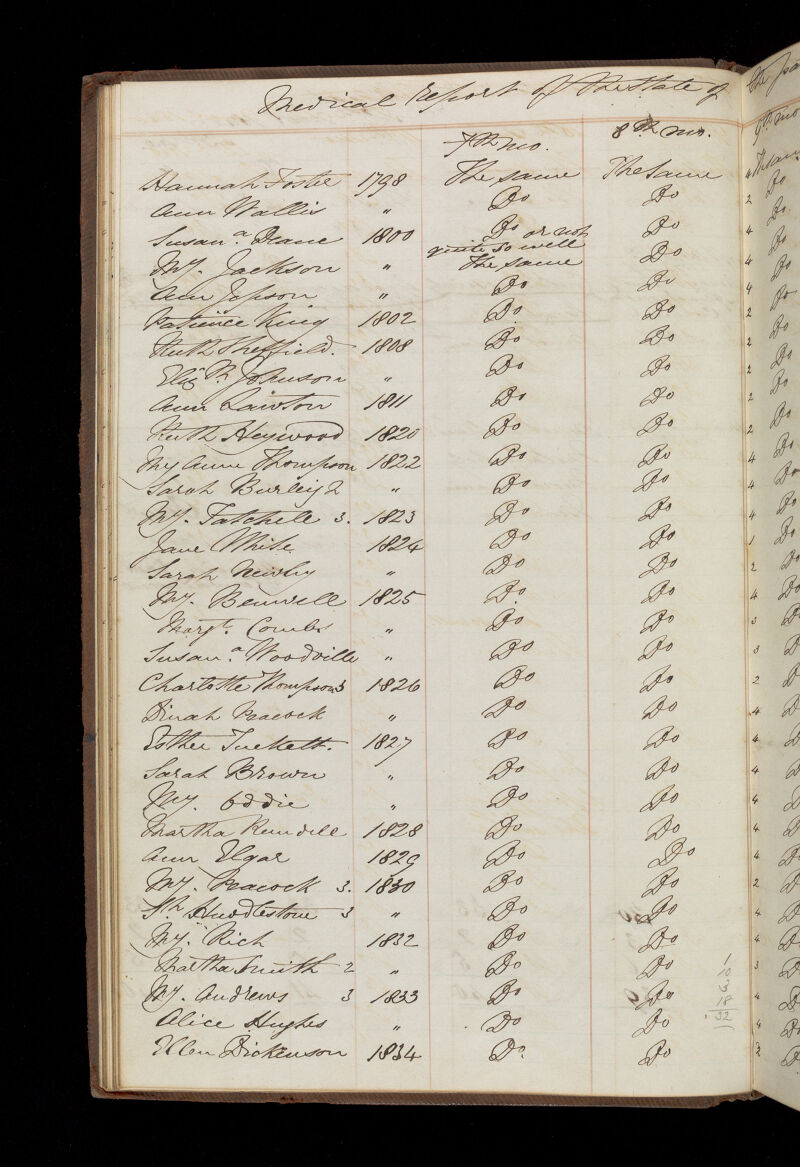 Medical Report of the State of
7th mo. 8th mo.
Hannah Foster 1798 The same The Same
Ann Wallis " Do Do
Susan.a Deane 1800 Do or not Do
quite so well
My. Jackson " The same Do
Ann Jepson " Do Do
Patience King 1802 Do Do
Ruth Sheffield. 1808 Do Do
Eliz.th Johnson " Do Do
Ann Lawton 1811 Do Do
Ruth Heywood 1820 Do Do
My Anne Thompson 1822 Do Do
Sarah Burleigh " Do Do
My. Tatchell 3. 1823 Do Do
Jane White 1824 Do Do
Sarah Newby " Do Do
My. Benwell 1825 Do Do
Margt. Combs " Do Do
Susan.a Woodville " Do Do
Charlotte Thompson 3 1826 Do Do
Dinah Peacock " Do Do
Esther Tuckett. 1827 Do Do
Sarah Brown " Do Do
My. Oddie " Do Do
Martha Rundell 1828 Do Do
Ann Elgar 1829 Do Do
My. Peacock 3. 1830 Do Do
Sh. Huddlestone 3 " Do Do
My. Rich 1832 Do Do
Martha Smith 2 " Do Do
My. Andrews 3 1833 Do Do
Alice Hughes " Do Do
Ellen Dickenson 1834 Do Do
1
10
3
18
32
the
9th mo
4 The same
2 Do
4 Do
4 Do
4 Do
2 Do
2 Do
2 Do
2 Do
2 Do
4 Do
4 Do
4 Do
1 Do
2 Do
4 Do
3 D
3 D
2 D
4 D
4 D
4 D
4 D
4 D
4 D
2 D
4 D
4 D
3 D
4 D
4 D
2 D